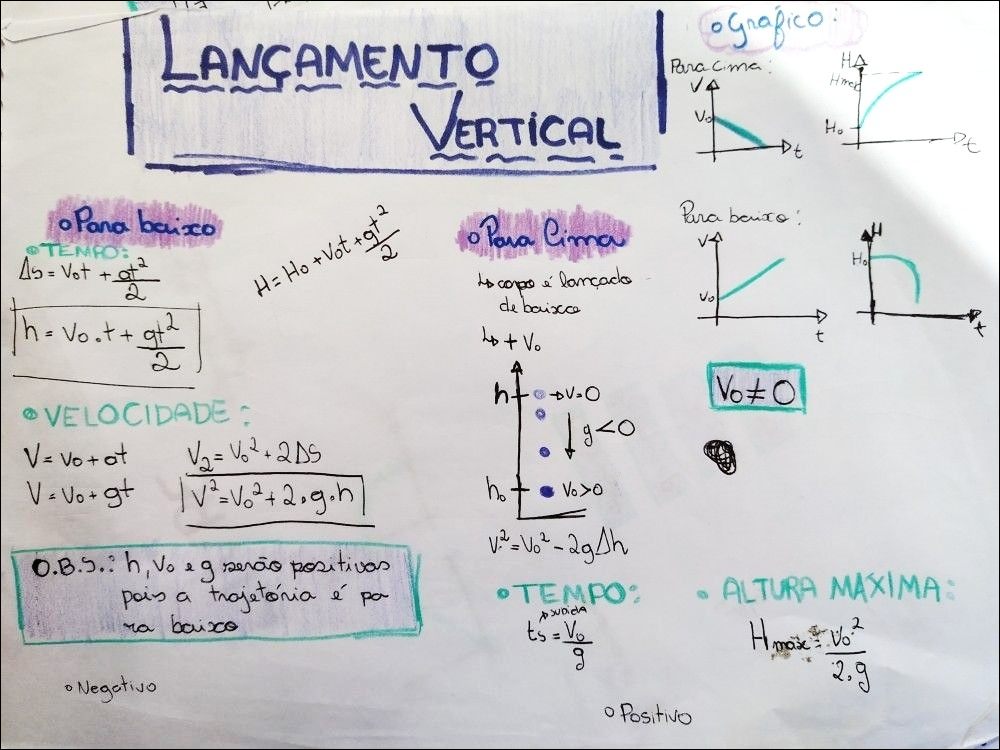 LANÇAMENTO
VERTICAL
Gráfico:
Para cima:
V
V₀
t
H
Hmax
H₀
t
Para baixo:
V
V₀
t
H
H₀
t
V₀ ≠ 0
Para baixo
TEMPO:
Δs = V₀t + at²/2
h = V₀.t + gt²/2
H = H₀ + V₀t + gt²/2
VELOCIDADE:
V = V₀ + at
V = V₀ + gt
V₂ = V₀² + 2ΔS
V² = V₀² + 2.g.h
O.B.S.: h, V₀ e g serão positivas
pois a trajetória é pa
ra baixo
Negativo
Para Cima
↳ corpo é lançado
de baixo
↳ + V₀
h → V=0
g<0
h₀ V₀>0
V² = V₀² - 2gΔh
TEMPO:
subida
ts = V₀/g
ALTURA MÁXIMA:
Hmáx = V₀²/2.g
Positivo